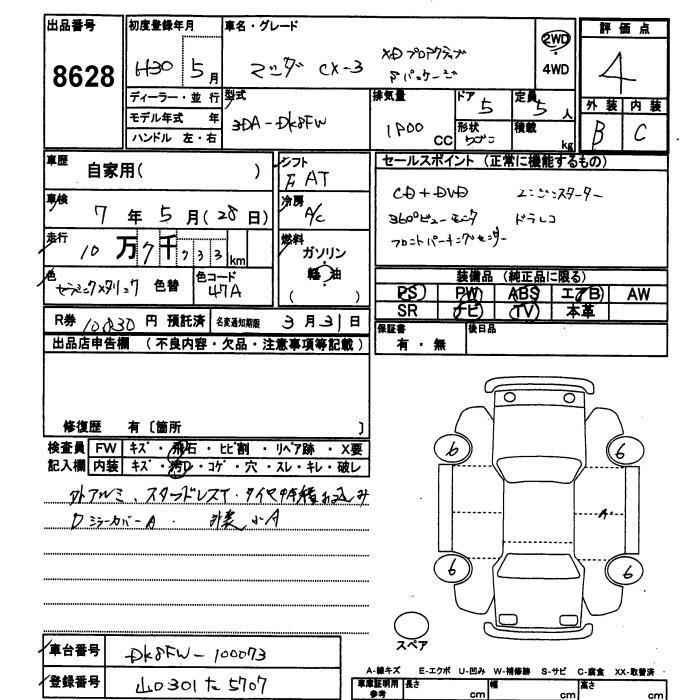 出品番号
8628
初度登録年月
H30 5月
車名・グレード
マツダ CX-3
XDプロアクティブ
Sパッケージ
2WD
4WD
評価点
4
外装 内装
B C
ディーラー・並行
モデル年式 年
ハンドル 左・右
型式
3DA-DK8FW
排気量
1800 CC
ドア 5
定員 5人
形状
積載 kg
車歴
自家用( )
シフト
F AT
車検
7年5月(28日)
冷房
A/C
走行
10万7千 km
燃料
ガソリン
軽油
( )
色
セラミックメタリック 色替
色コード
47A
R券 10830円 預託済 名変通知期限 3月31日
セールスポイント (正常に機能するもの)
CD+DVD エンジンスターター
360°ビューモニタ ドラレコ
フロントパーキングセンサー
装備品 (純正品に限る)
PS PW ABS エアB AW
SR ナビ TV 本革
保証書
有・無
後日品
出品店申告欄 (不良内容・欠品・注意事項等記載)
修復歴 有〔箇所 〕
検査員 FW キズ・飛石・ヒビ割・リペア跡・X要
記入欄 内装 キズ・汚れ・コゲ・穴・スレ・キレ・破レ
外アルミ、スタッドレスT・タイヤ4本積み込み
Dミラーカバー A . 外装小A
6 6
A
6 6
スペア
車台番号 DK8FW-100073
登録番号 山口301た5707
A-線キズ E-エクボ U-凹み W-補修跡 S-サビ C-腐食 XX-取替済
車庫証明用
参考
長さ cm 幅 cm 高さ cm